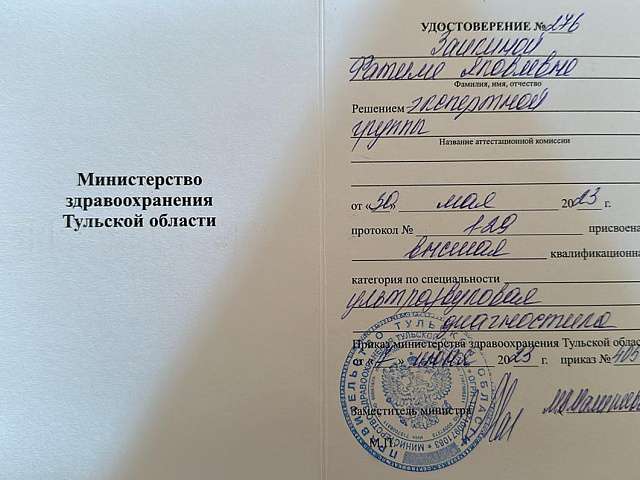 Министерство
здравоохранения
Тульской области
УДОСТОВЕРЕНИЕ № 276
Заикиной
Фатиме Яковлевне
Фамилия, имя, отчество
Решением экспертной
группы
Название аттестационной комиссии
от «30» мая 2023 г.
протокол № 129 присвоена
высшая квалификационна
категория по специальности
ультразвуковая
диагностика
Приказ министерства здравоохранения Тульской облас
от «7» июня 2023 г. приказ № 403
Заместитель министра
М.П.